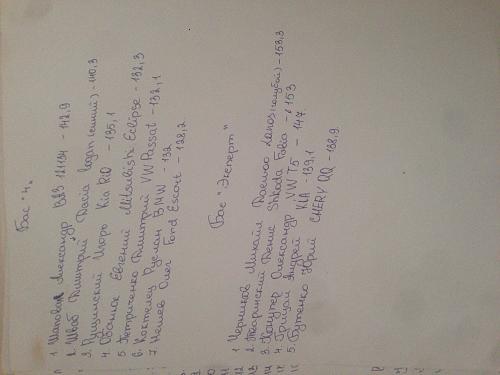 Бас "4"
1 Шаповал Александр ВАЗ 21134 - 142,9
2. Шваб Дмитрий Dacia Logan (синий) - 140,3
3. Пушинский Игорь Kia Rio - 135,1
4. Обаниак Евгений Mitsubishi Eclipse - 132,3
5 Петриченко Дмитрий VW Passat - 132,1
6. Коктелец Руслан BMW - 132
7 Нешев Олег Ford Escort - 128,2
Бас "Эксперт"
1 Черников Михаил Daewoo Lanos (голубой) - 153,3
2. Тваринский Денис Shkoda Fabia - 153
3. Конупер Александр VW T5 - 147
4. Грицай Андрей KIA - 139,1
5. Бутенко Юрий CHERY QQ - 138,9